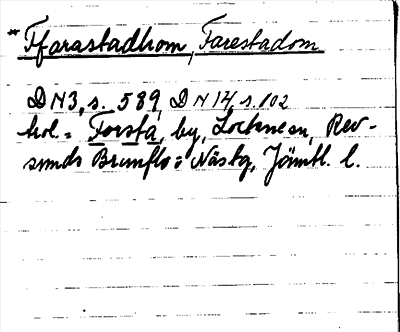 *Ffarastadhom, Farestadom
DN3, s. 589, DN14, s. 102
trol = Forsta, by, Lockne sn, Rev-
sunds Brunflo = Näs tg, Jämtl. l.